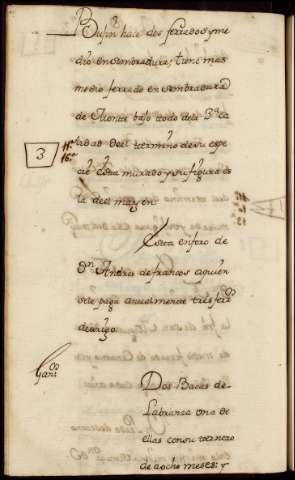 hace dos ferrados y me
dio ensembradura; tiene mas
medio ferrado ensembradura
de Monte bajo todo de la 3.ª ca
lidad del termino de su espe
cie esta murado y su figura es
la del margen
3
Esta enforo de
D.n Andres de francos aquien
sele paga anualmente tres ferr.dos
de trigo
Gan.do
Dos Bacas de
Labranza una de
ellas con su ternero
de ocho meses: y